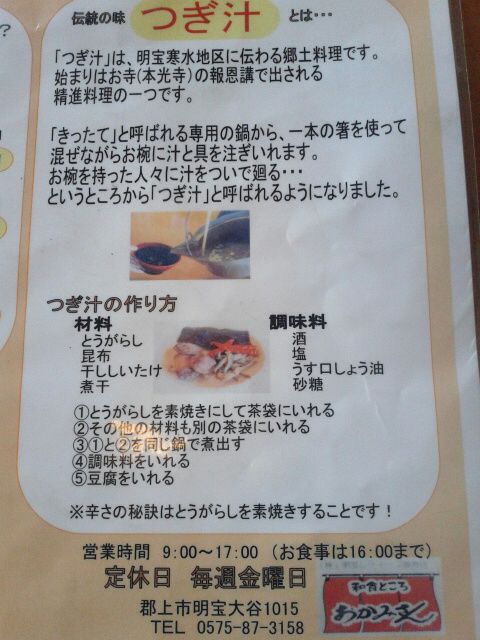 伝統の味 つぎ汁 とは・・・
「つぎ汁」は、明宝寒水地区に伝わる郷土料理です。
始まりはお寺(本光寺)の報恩講で出される
精進料理の一つです。
「きったて」と呼ばれる専用の鍋から、一本の箸を使って
混ぜながらお椀に汁と具を注ぎいれます。
お椀を持った人々に汁をついで廻る・・・
というところから「つぎ汁」と呼ばれるようになりました。
つぎ汁の作り方
材料
とうがらし
昆布
干ししいたけ
煮干
調味料
酒
塩
うす口しょう油
砂糖
①とうがらしを素焼きにして茶袋にいれる
②その他の材料も別の茶袋にいれる
③①と②を同じ鍋で煮出す
④調味料をいれる
⑤豆腐をいれる
※辛さの秘訣はとうがらしを素焼きすることです!
営業時間 9:00～17:00 (お食事は16:00まで)
定休日 毎週金曜日
郡上市明宝大谷1015
TEL 0575-87-3158
和食ところ